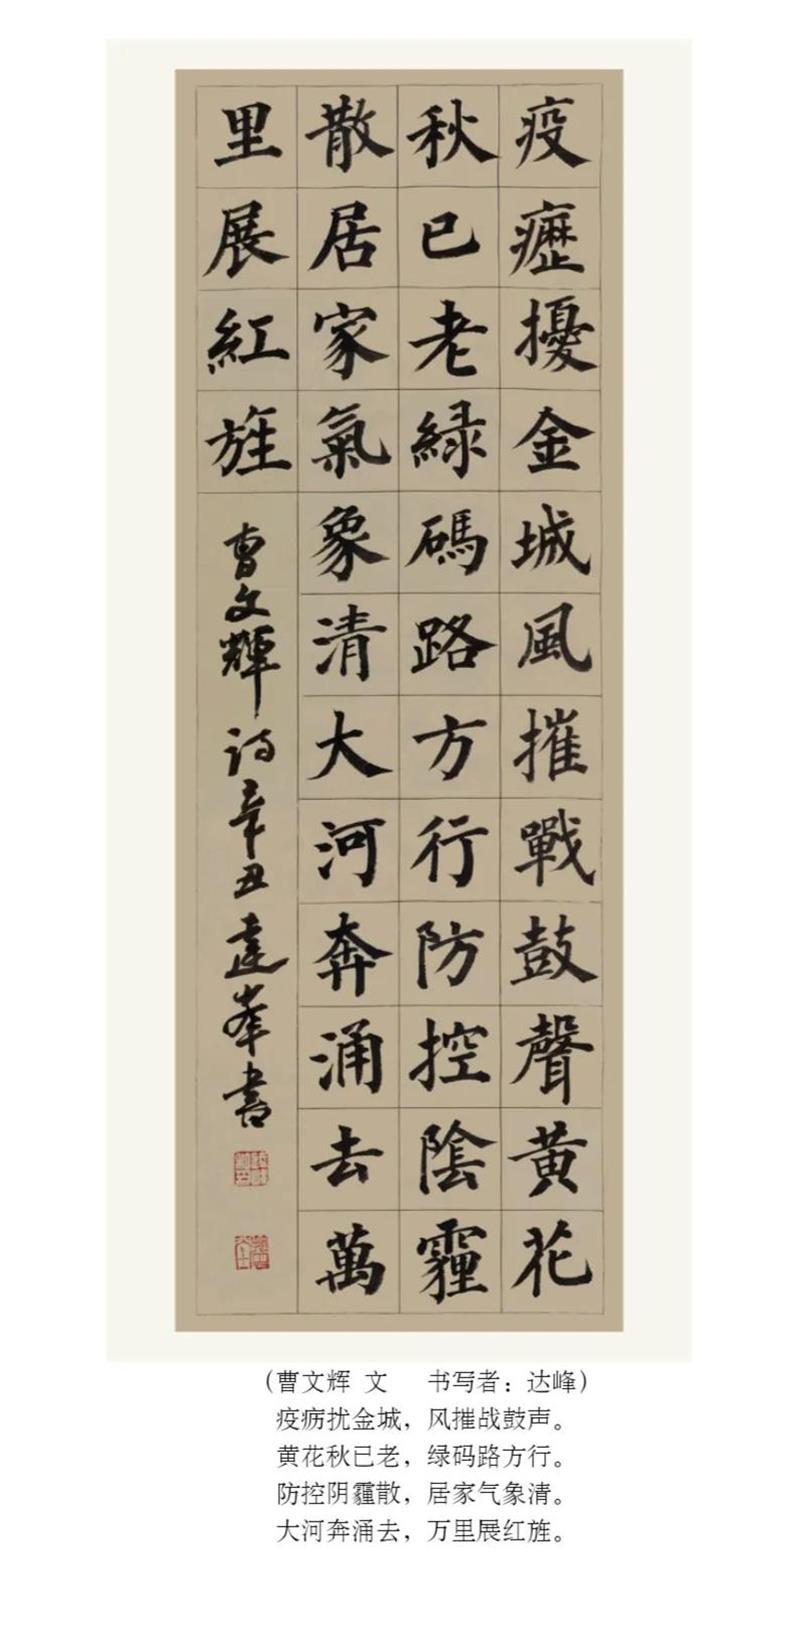 疫癧擾金城風摧戰鼓聲黃花
秋已老緑碼路方行防控陰霾
散居家氣象清大河奔涌去萬
里展紅旌
曹文輝詩辛丑達峯書
（曹文辉 文 书写者：达峰）
疫疬扰金城，风摧战鼓声。
黄花秋已老，绿码路方行。
防控阴霾散，居家气象清。
大河奔涌去，万里展红旌。